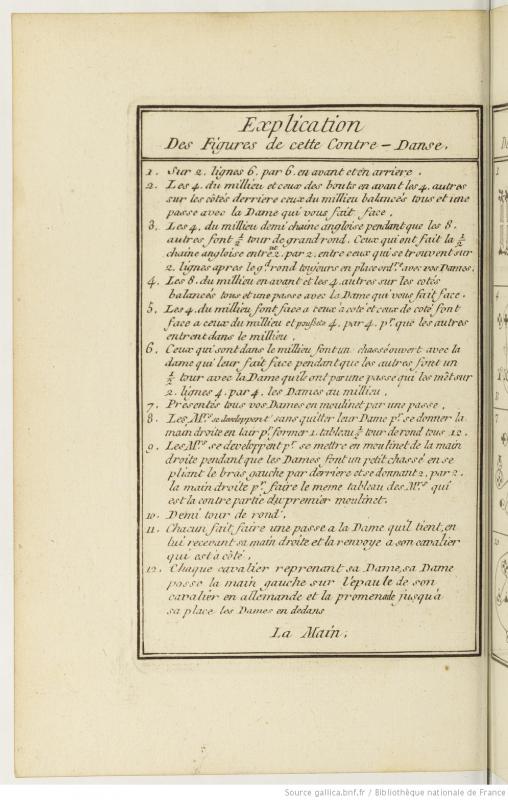 Explication
Des Figures de cette Contre-Danse.
1. Sur 2. lignes 6. par 6. en avant et en arriere.
2. Les 4. du millieu et ceux des bouts en avant les 4. autres
sur les côtés derriere ceux du millieu balancés tous et une
passe avec la Dame qui vous fait face.
3. Les 4. du millieu demi chaine angloise pendant que les 8.
autres font ½ tour de grand rond. Ceux qui ont fait la ½
chaine angloise entrent 2. par 2. entre ceux qui se trouvent sur
2. lignes apres le gd rond toujours en place ordre avec vos Dames.
4. Les 8. du millieu en avant et les 4. autres sur les cotés
balancés tous et une passe avec la Dame qui vous fait face.
5. Les 4. du millieu font face a ceux à coté et ceux de coté font
face a ceux du millieu et poussete 4. par 4. pr. que les autres
entrent dans le millieu.
6. Ceux qui sont dans le millieu font un chassé ouvert avec la
dame qui leur fait face pendant que les autres font un
½ tour avec la Dame quils ont par une passe qui les mèt sur
2. lignes 4. par 4. les Dames au millieu.
7. Présentés tous vos Dames en moulinet par une passe.
8. Les Mrs. se developpent sans quitter leur Dame pr. se donner la
main droite en lair pr. former 1. tableau ½ tour de rond tous 12.
9. Les Mrs. se developpent pr. se mettre en moulinet de la main
droite pendant que les Dames font un petit chassé en se
pliant le bras gauche par derriere et se donnant 2. par 2.
la main droite pr. faire le meme tableau des Mrs. qui
est la contre partie du premier moulinet.
10. Demi tour de rond.
11. Chacun fait faire une passe a la Dame qu'il tient, en
lui recevant sa main droite et la renvoye a son cavalier
qui est à côté.
12. Chaque cavalier reprenant sa Dame, sa Dame
passe la main gauche sur l'epaule de son
cavalier en allemande et la promenade jusqu'à
sa place les Dames en dedans
La Main.
Source gallica.bnf.fr / Bibliothèque nationale de France